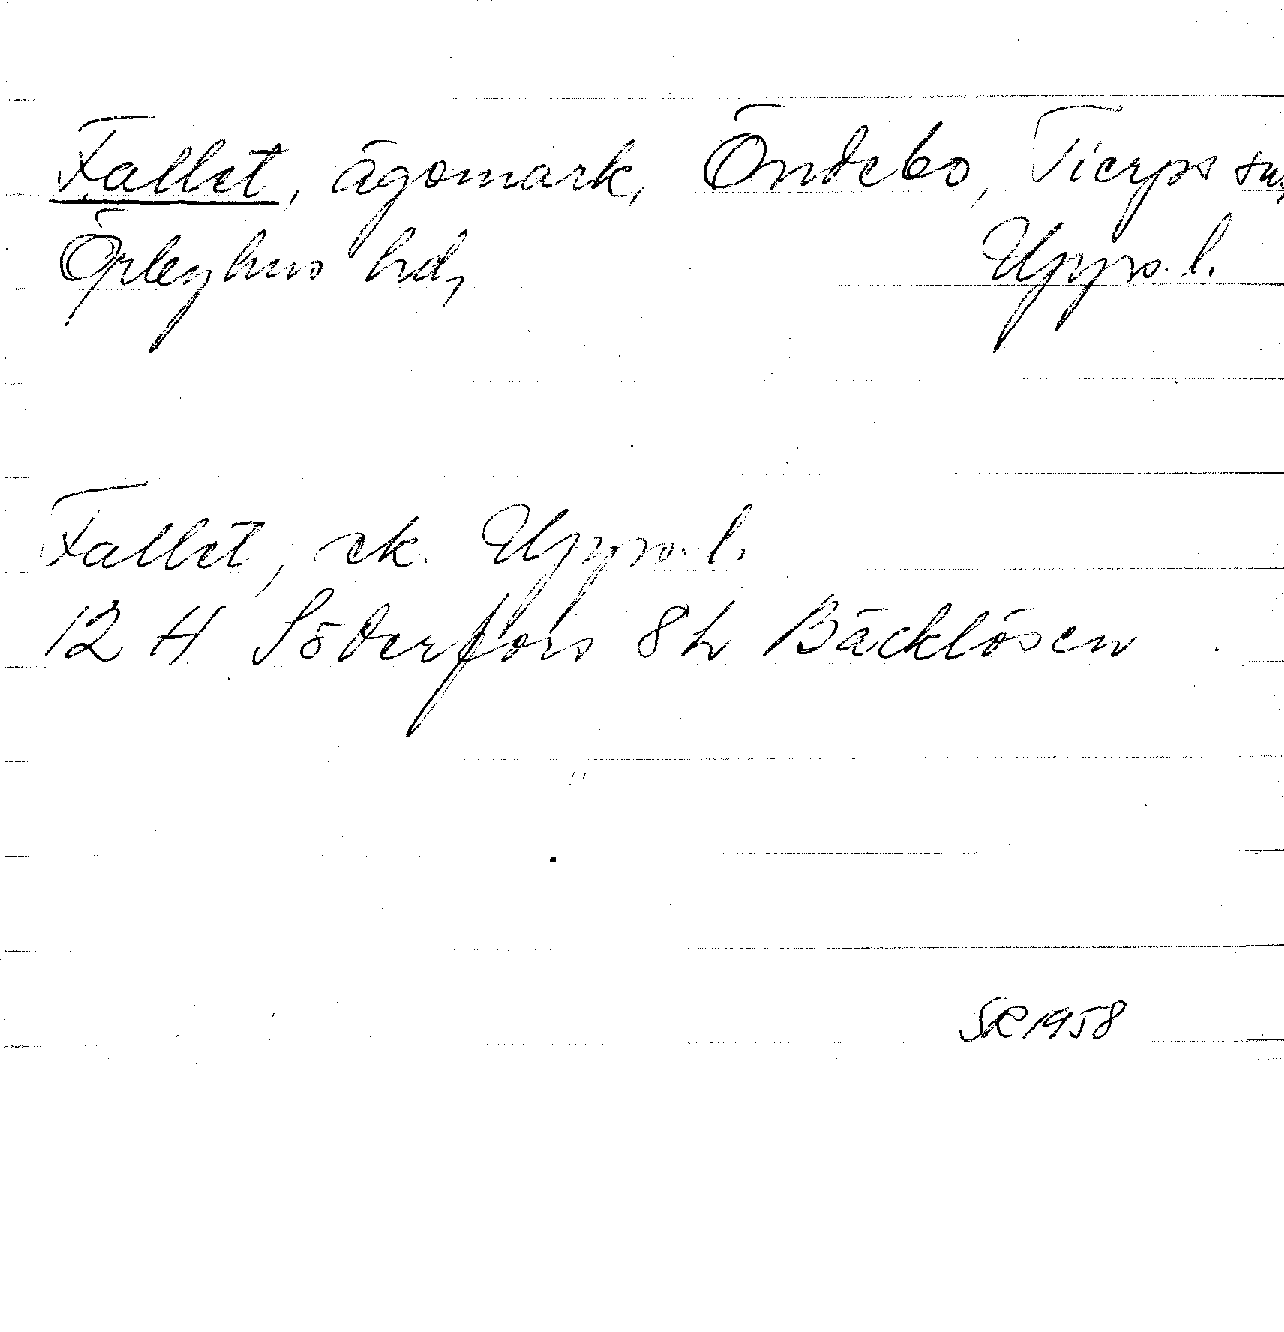 Fallet, ägomark, Öndebo, Tierps sn,
Örbyhus hd, Upps. l.
Fallet, ek. Upps. l.
12 H Söderfors 8 h Bäcklösen
SR 1958